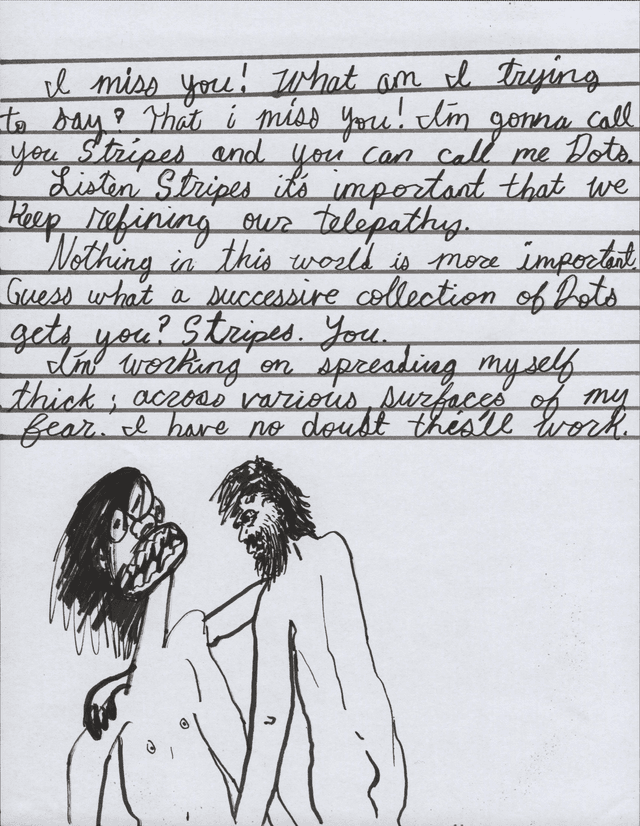 I miss you! What am I trying
to say? That i miss you! I'm gonna call
you Stripes and you can call me Dots.
Listen Stripes it's important that we
keep refining our telepathy.
Nothing in this world is more important.
Guess what a successive collection of Dots
gets you? Stripes. You.
I'm working on spreading myself
thick; across various surfaces of my
fear. I have no doubt this'll work.